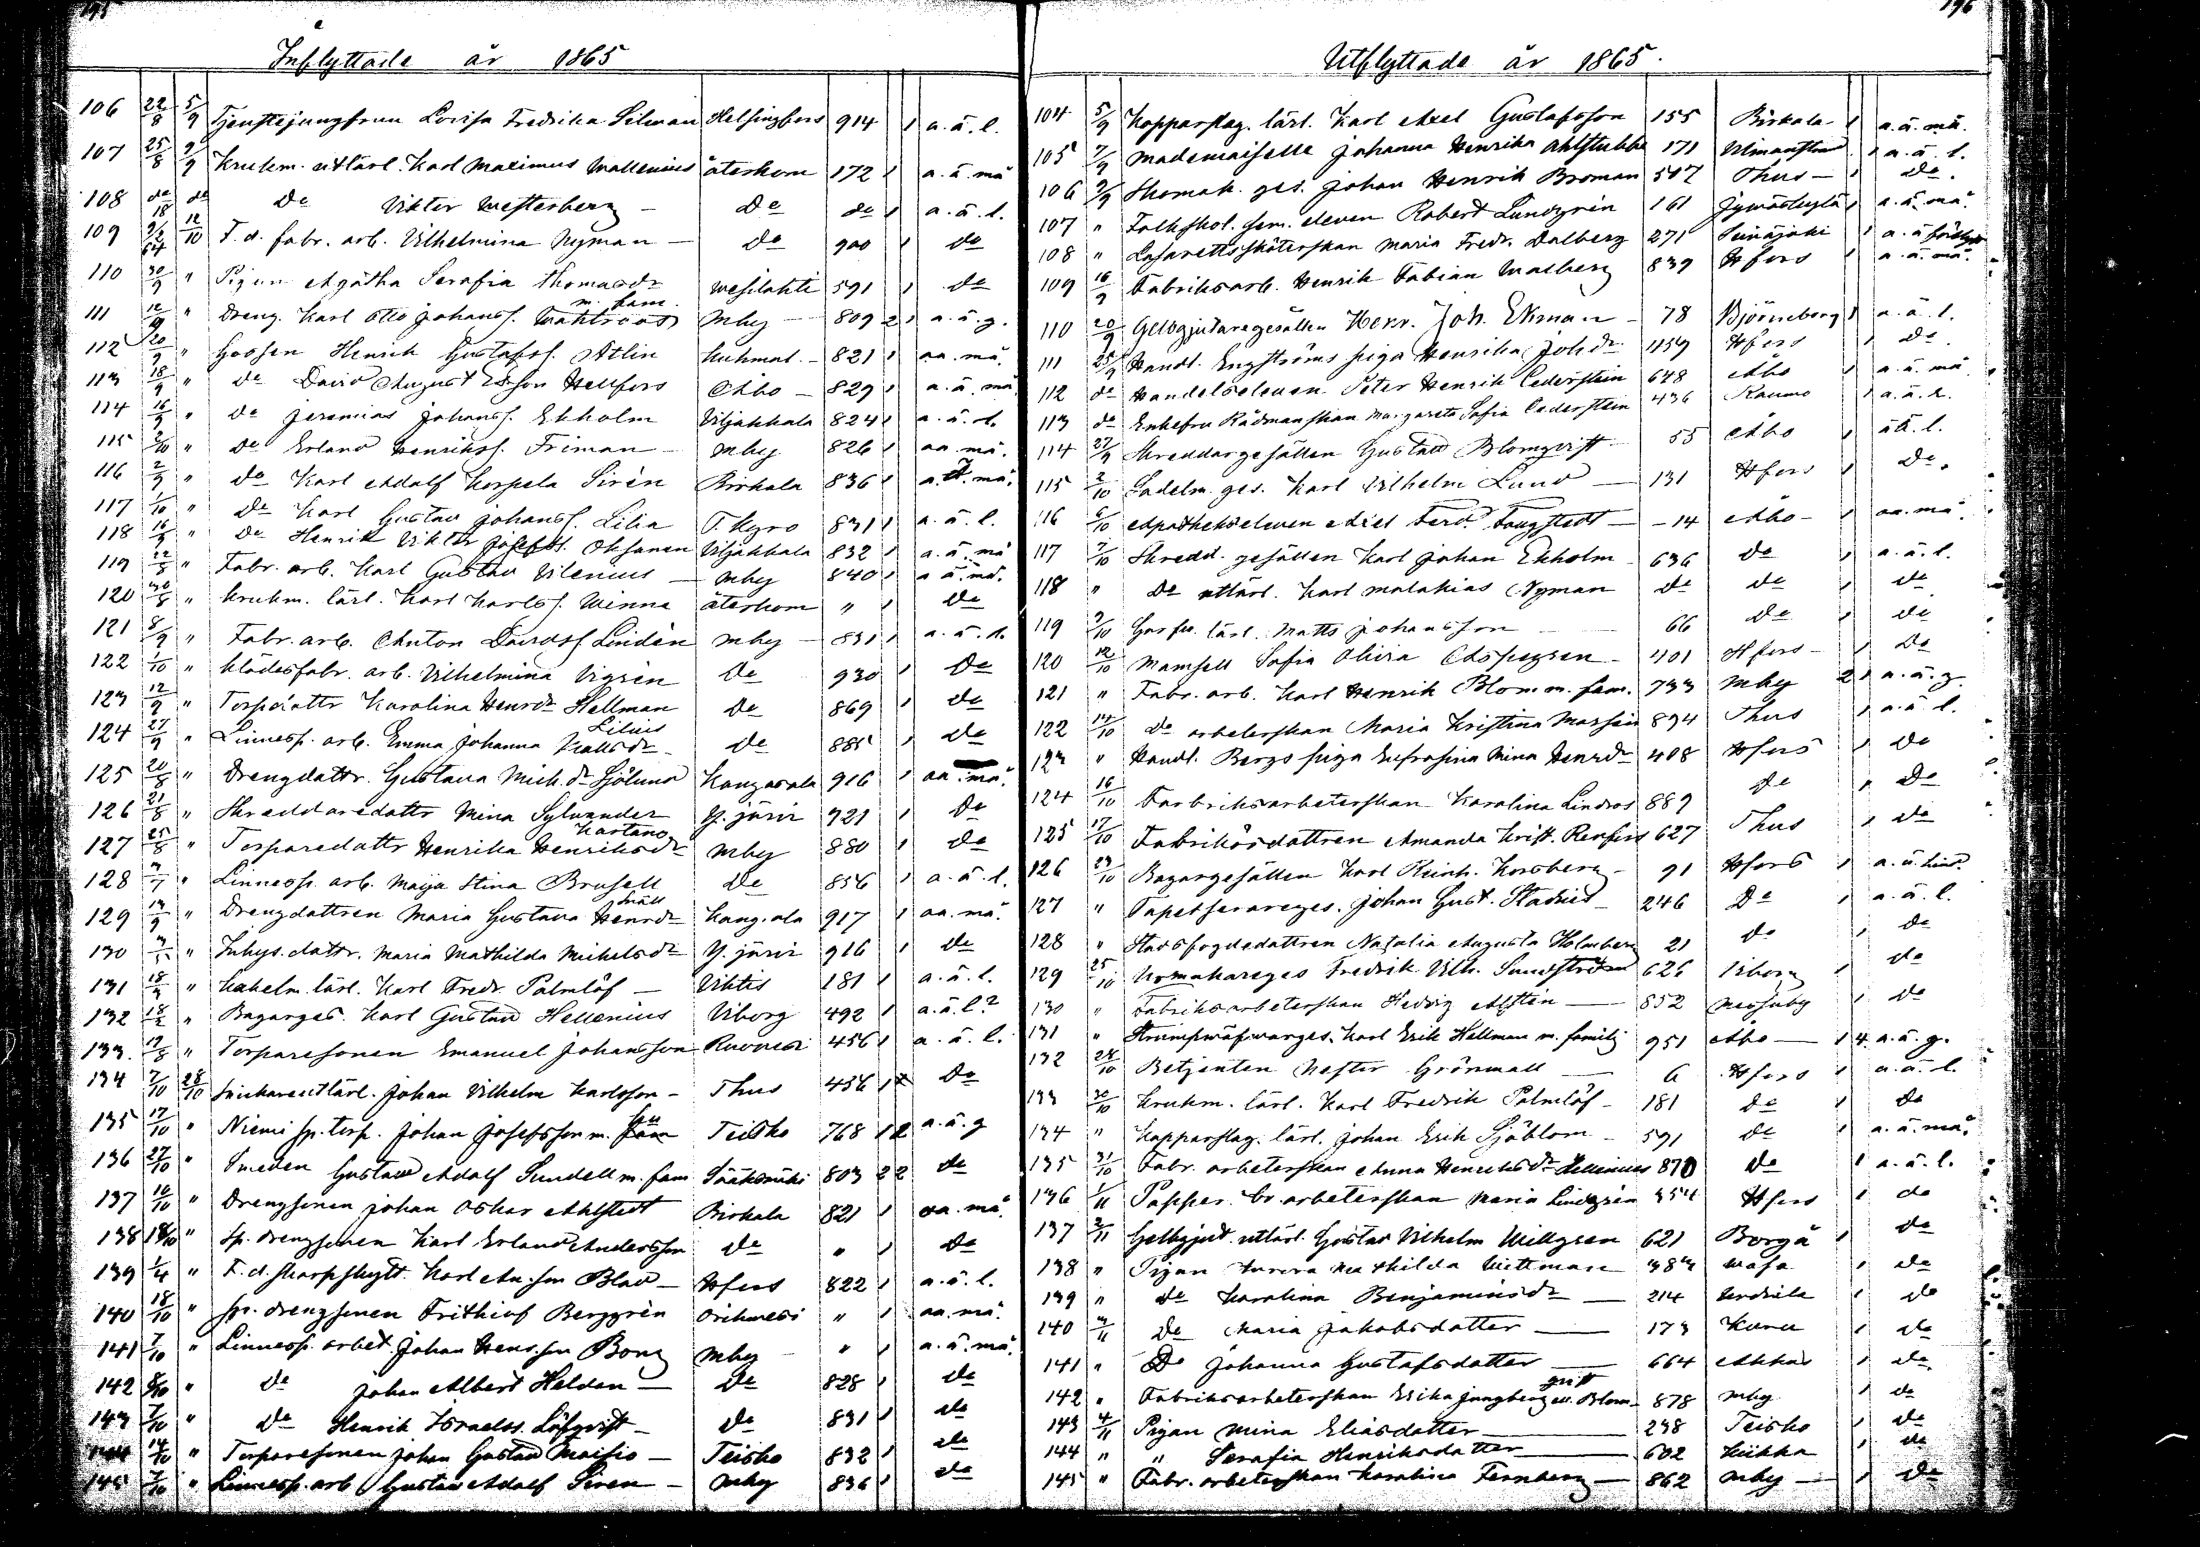 195
Inflyttade år 1865
106 22/8 5/9 Tjenstejungfrun Lovisa Fredrika Silman Helsingfors 914 1 a.ä.l.
107 25/8 9/9 Krukm. utlärl. Karl Maximus Wallenius återkom 172 1 a.ä.må
108 do do do Viktor Westerberg - do do 1 a.ä.l.
109 12/10 F.d. fabr. arb. Vilhelmina Nyman - do 900 1 do
110 30/9 " Pigan Agatha Serafia Thomasdr Wesilahti 591 1 do
m. fam.
111 12/9 " Dreng. Karl Otto Johanss. Wahlroos Mby - 809 2 1 a.ä.g.
112 20/9 " Gossen Henrik Gustafss. Atlin Kuhmal. - 821 1 aa.må.
113 18/9 " do David August Hellfors Åbo - 829 1 a.ä.må
114 16/9 " do Jeremias Johanss. Ekholm Viljakkala 824 1 a.ä.l.
115 " do Erland Henrikss. Friman - Mby 826 1 aa.må.
116 2/9 " do Karl Adolf Korpela Sirén Birkala 836 1 a.ä.må.
117 1/10 " do Karl Gustav Johanss. Lilia T. Kyro 831 1 a.ä.l.
118 16/9 " do Henrik Viktor Josefss. Oksanen Viljakkala 832 1 a.ä.må
119 " Fabr. arb. Karl Gustav Vilenius - Mby 840 1 a.ä.må.
120 30/8 " Krukm. lärl. Karl Karlss. Winna återkom " 1 do
121 8/9 " Fabr. arb. Anton Davidss. Lindén Mby - 831 1 a.ä.l.
122 1/10 " Klädesfabr. arb. Vilhelmina Vigrén do 930 1 do
123 12/9 " Torpdattr Karolina Henrdr Hellman do 869 1 do
Lilius
124 27/9 " Linnesp. arb. Emma Johanna Kallsdr - do 885 1 do
125 20/8 " Drengdattr. Gustava Mich.dr Sjölund Kangasala 916 1 aa.må.
126 21/8 " Skreddaredattr Mina Sylvander Y. järvi 921 1 do
Kartano
127 25/8 " Torparedattr Henrika Henriksdr Mby 880 1 do
128 " Linnesp. arb. Maija Stina Brusell do 856 1 a.ä.l.
Mäll
129 14/9 " Drengdattren Maria Gustava Henrdr Kang.ala 917 1 aa.må.
130 " Inhys. dattr. Maria Mathilda Mickelsdr Y. järvi 916 1 do
131 " Kakelm. lärl. Karl Fredr. Palmlöf - Viktis 181 1 a.ä.l.
132 " Bagarges. Karl Gustav Hellenius Viborg 492 1 a.ä.l?
133. 19/8 " Torparesonen Emanuel Johansson Ruovesi 456 1 a.ä.l.
134 7/10 28/10 Snickareutlärl. Johan Vilhelm Karlsson - Thus 456 1 do
135 17/10 " Niemi sp. torp. Johan Josefsson m. Teisko 768 1 2 a.ä.g
136 27/10 " Smeden Gustaw Adolf Sundell m. fam Sääksmäki 803 2 2 do
137 16/10 " Drengsonen Johan Oskar Ahlstedt Birkala 821 1 aa.må.
138 " Sp. drengsonen Karl Erland Andersson do " 1 do
139 1/4 " F.d. skarpskytt. Karl An.son Blad - Hfors 822 1 a.ä.l.
140 18/10 " Sp. drengsonen Frithiof Berggrén Orihwesi " 1 aa.må.
141 7/10 " Linnesp. arbet Johan Henr.son Bong Mby - " 1 a.ä.må.
142 8/10 " do Johan Albert Helden - do 828 1 do
143 7/10 " do Henrik Israelss. Löfqvist - do 831 1 do
144 14/10 " Torparesonen Johan Gustav Maisio - Teisko 832 1 do
145 7/10 " Linnesp. arb Gustav Adolf Siren - Mby 836 1 do
196
Utflyttade år 1865.
104 5/9 Kopparslag. lärl. Karl Axel Gustafsson 155 Birkala - 1 a.ä.må.
105 7/9 Mademoiselle Johanna Henrika Ahlstubbe 171 Ulmanstrand 1 a.ä.l.
106 9/9 Skomak. ges. Johan Henrik Broman 517 Thus - 1 do.
107 " Folkskol. sem. eleven Robert Lundgrén 161 Jywäskylä 1 a.ä.må.
108 " Lasarettsköterskan Maria Fredr. Dalberg 271 Seinäjoki 1 a.ä.
109 16/9 Fabriksarb. Henrik Fabian Walberg 839 Hfors 1 a.ä.må.
110 20/9 Gelbgjutaregesällen Henr. Joh. Ekman - 78 Björneborg 1 a.ä.l.
111 25/9 Handl. Engströms piga Henrika Joh.dr 1159 Hfors 1 do.
112 do Handelseleven Peter Henrik Cederstein 648 Åbo 1 a.ä.må
113 do Enkefru Rådmanskan Margareta Sofia Cederstein 436 Raumo 1 a.ä.l.
114 27/9 Skreddargesällen Gustaw Blomqvist 55 Åbo 1 ää.l.
115 2/10 Sadelm. ges. Karl Vilhelm Lund - 131 Hfors 1 do.
116 6/10 Apothekseleven Axel Ferd. Faugstedt - 14 Åbo - 1 aa.må.
117 7/10 Skredd. gesällen Karl Johan Ekholm - 636 do 1 a.ä.l.
118 " do utlärl. Karl Malakias Nyman do do 1 do
119 9/10 Garfv. lärl. Matts Johansson - 66 do 1 do
120 12/10 Mamsell Sofia Olivia - 401 Hfors - 1 do
121 " Fabr. arb. Karl Henrik Blom m. fam. 733 Mby 2 1 a.ä.g.
122 14/10 do arbeterskan Maria Kristina Massin 894 Thus 1 a.ä.l.
123 " Handl. Bergs piga Eufrosina Mina Henrdr 408 Hfors 1 do
124 16/10 Fabriksarbeterskan Karolina Lindros 889 do 1 do
125 17/10 Fabriksdattren Amanda Krist. Renfors 627 Thus 1 do
126 23/10 Bagargesällen Karl Reinh. Korsberg - 91 Hfors 1 a.ä.
127 " Tapetserareges. Johan Gust. Stadius 246 do 1 a.ä.l.
128 " Stadsfogdedattren Natalia Augusta Holmberg 21 do 1 do
129 25/10 Urmakareges Fredrik Vilh. Sundström 626 Viborg 1 do
130 " Fabriksarbeterskan Hedvig Alstén - 852 Messuby 1 do
131 " Strumpwäfwarges. Karl Erik Hellman m. familj 951 Åbo - 1 4 a.ä.g.
132 28/10 Betjenten Nestor Grönwall - 6 Hfors 1 a.ä.l.
133 30/10 Krukm. lärl. Karl Fredrik Palmlöf - 181 do 1 do
134 " Kopparslag. lärl. Johan Erik Sjöblom - 591 do 1 a.ä.må.
135 31/10 Fabr. arbeterskan Anna Henriksdr Hellenius 870 do 1 a.ä.l.
136 1/11 Papper. br. arbeterskan Maria Lindgrén 354 Hfors 1 do
137 2/11 Gelbgjut. utlärl. Gustav Vilhelm Willgren 621 Borgå 1 do
138 " Pigan Aurora Mathilda Wittman 383 Wasa 1 do
139 " do Karolina Benjaminsdr - 214 Urdiala 1 do
140 3/11 do Maria Jakobsdotter - 173 Kuru 1 do
141 " do Johanna Gustafsdotter - 664 Akkas 1 do
gift
142 " Fabriksarbeterskan Erika Jungberg Blom 878 Mby 1 do
143 4/11 Pigan Mina Eliasdotter - 238 Teisko 1 do
144 " " Serafia Henriksdotter - 602 Kiikka 1 do
145 " Fabr. arbeterskan Karolina Fernberg - 862 Mby - 1 do